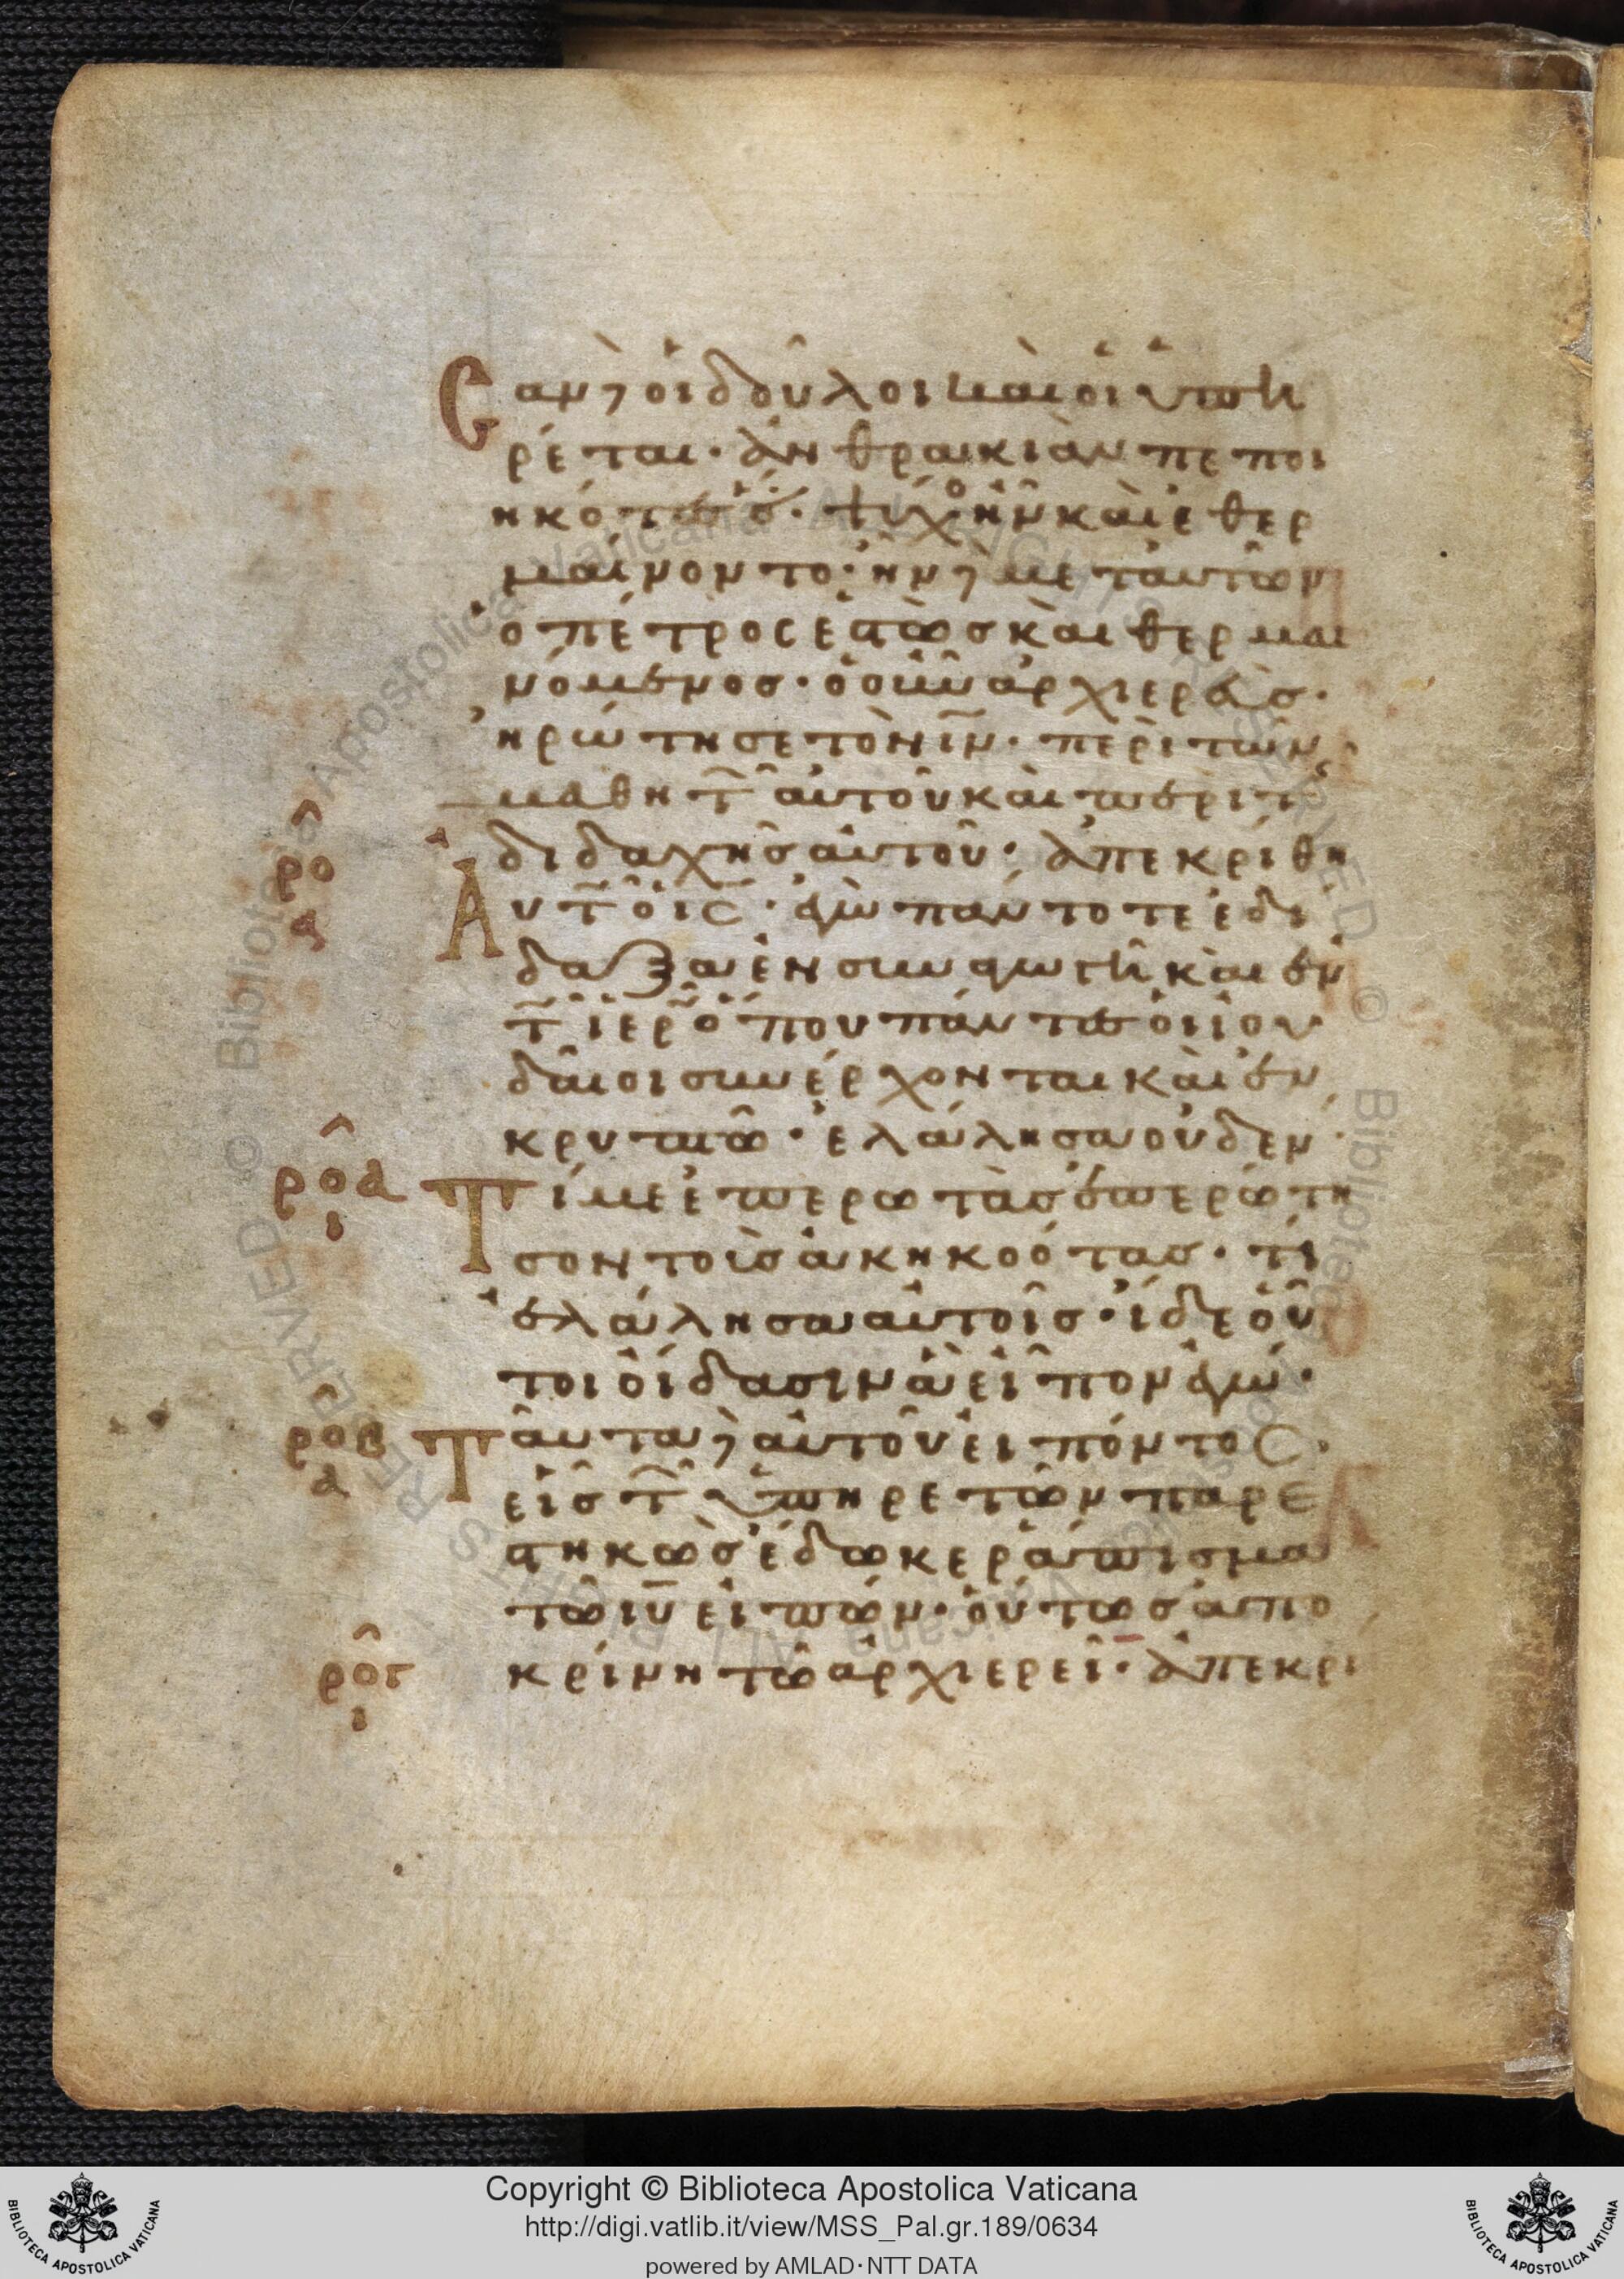 Εαν δὲ οἱ δοῦλοι καὶ οἱ ὑπη
ρέται· ἀνθρακιὰν πεποι
ηκότες ὅτι ψύχος ἦν καὶ ἐθερ
μαίνοντο· ἦν δὲ μετ αὐτῶν
ὁ πέτρος ἑστὼσ καὶ θερμαι
νόμενοσ· ὁ οὖν ἀρχιερεὺσ·
ἠρώτησε τὸν ῑν· περὶ τῶν
μαθητ αὐτοῦ καὶ περὶ τῆς
διδαχῆσ αὐτοῦ· ἀπεκρίθη
Αυτῶ ὁ ῑς· ἐγὼ πάντοτε ἐδί
δαξα ἐν συναγωγῆ καὶ ἐν
τῶ ἱερῶ ὅπου πάντες οἱ ἰου
δαῖοι συνέρχονται καὶ ἐν
κρυπτῶ· ἐλάλησα οὐδέν·
Τί με ἐπερωτᾶσ ἐπερώτη
σον τοὺσ ἀκηκοότασ· τί
ἐλάλησα αὐτοῖσ· ἴδε οὗ
τοι οἴδασιν ἃ εἶπον ἐγώ·
Ταῦτα δὲ αὐτοῦ εἰπόντος·
εἷσ τῶν ὑπηρετῶν παρε
στηκὼσ ἔδωκε ράπισμα
τῶ ῑυ εἰπών· οὕτωσ ἀπο
κρίνη τῶ ἀρχιερεῖ· ἀπεκρί
ρο
α
ροα
ι
ροβ
α
ρογ
ι
Copyright © Biblioteca Apostolica Vaticana
http://digi.vatlib.it/view/MSS_Pal.gr.189/0634
powered by AMLAD·NTT DATA
BIBLIOTECA APOSTOLICA VATICANA
BIBLIOTECA APOSTOLICA VATICANA